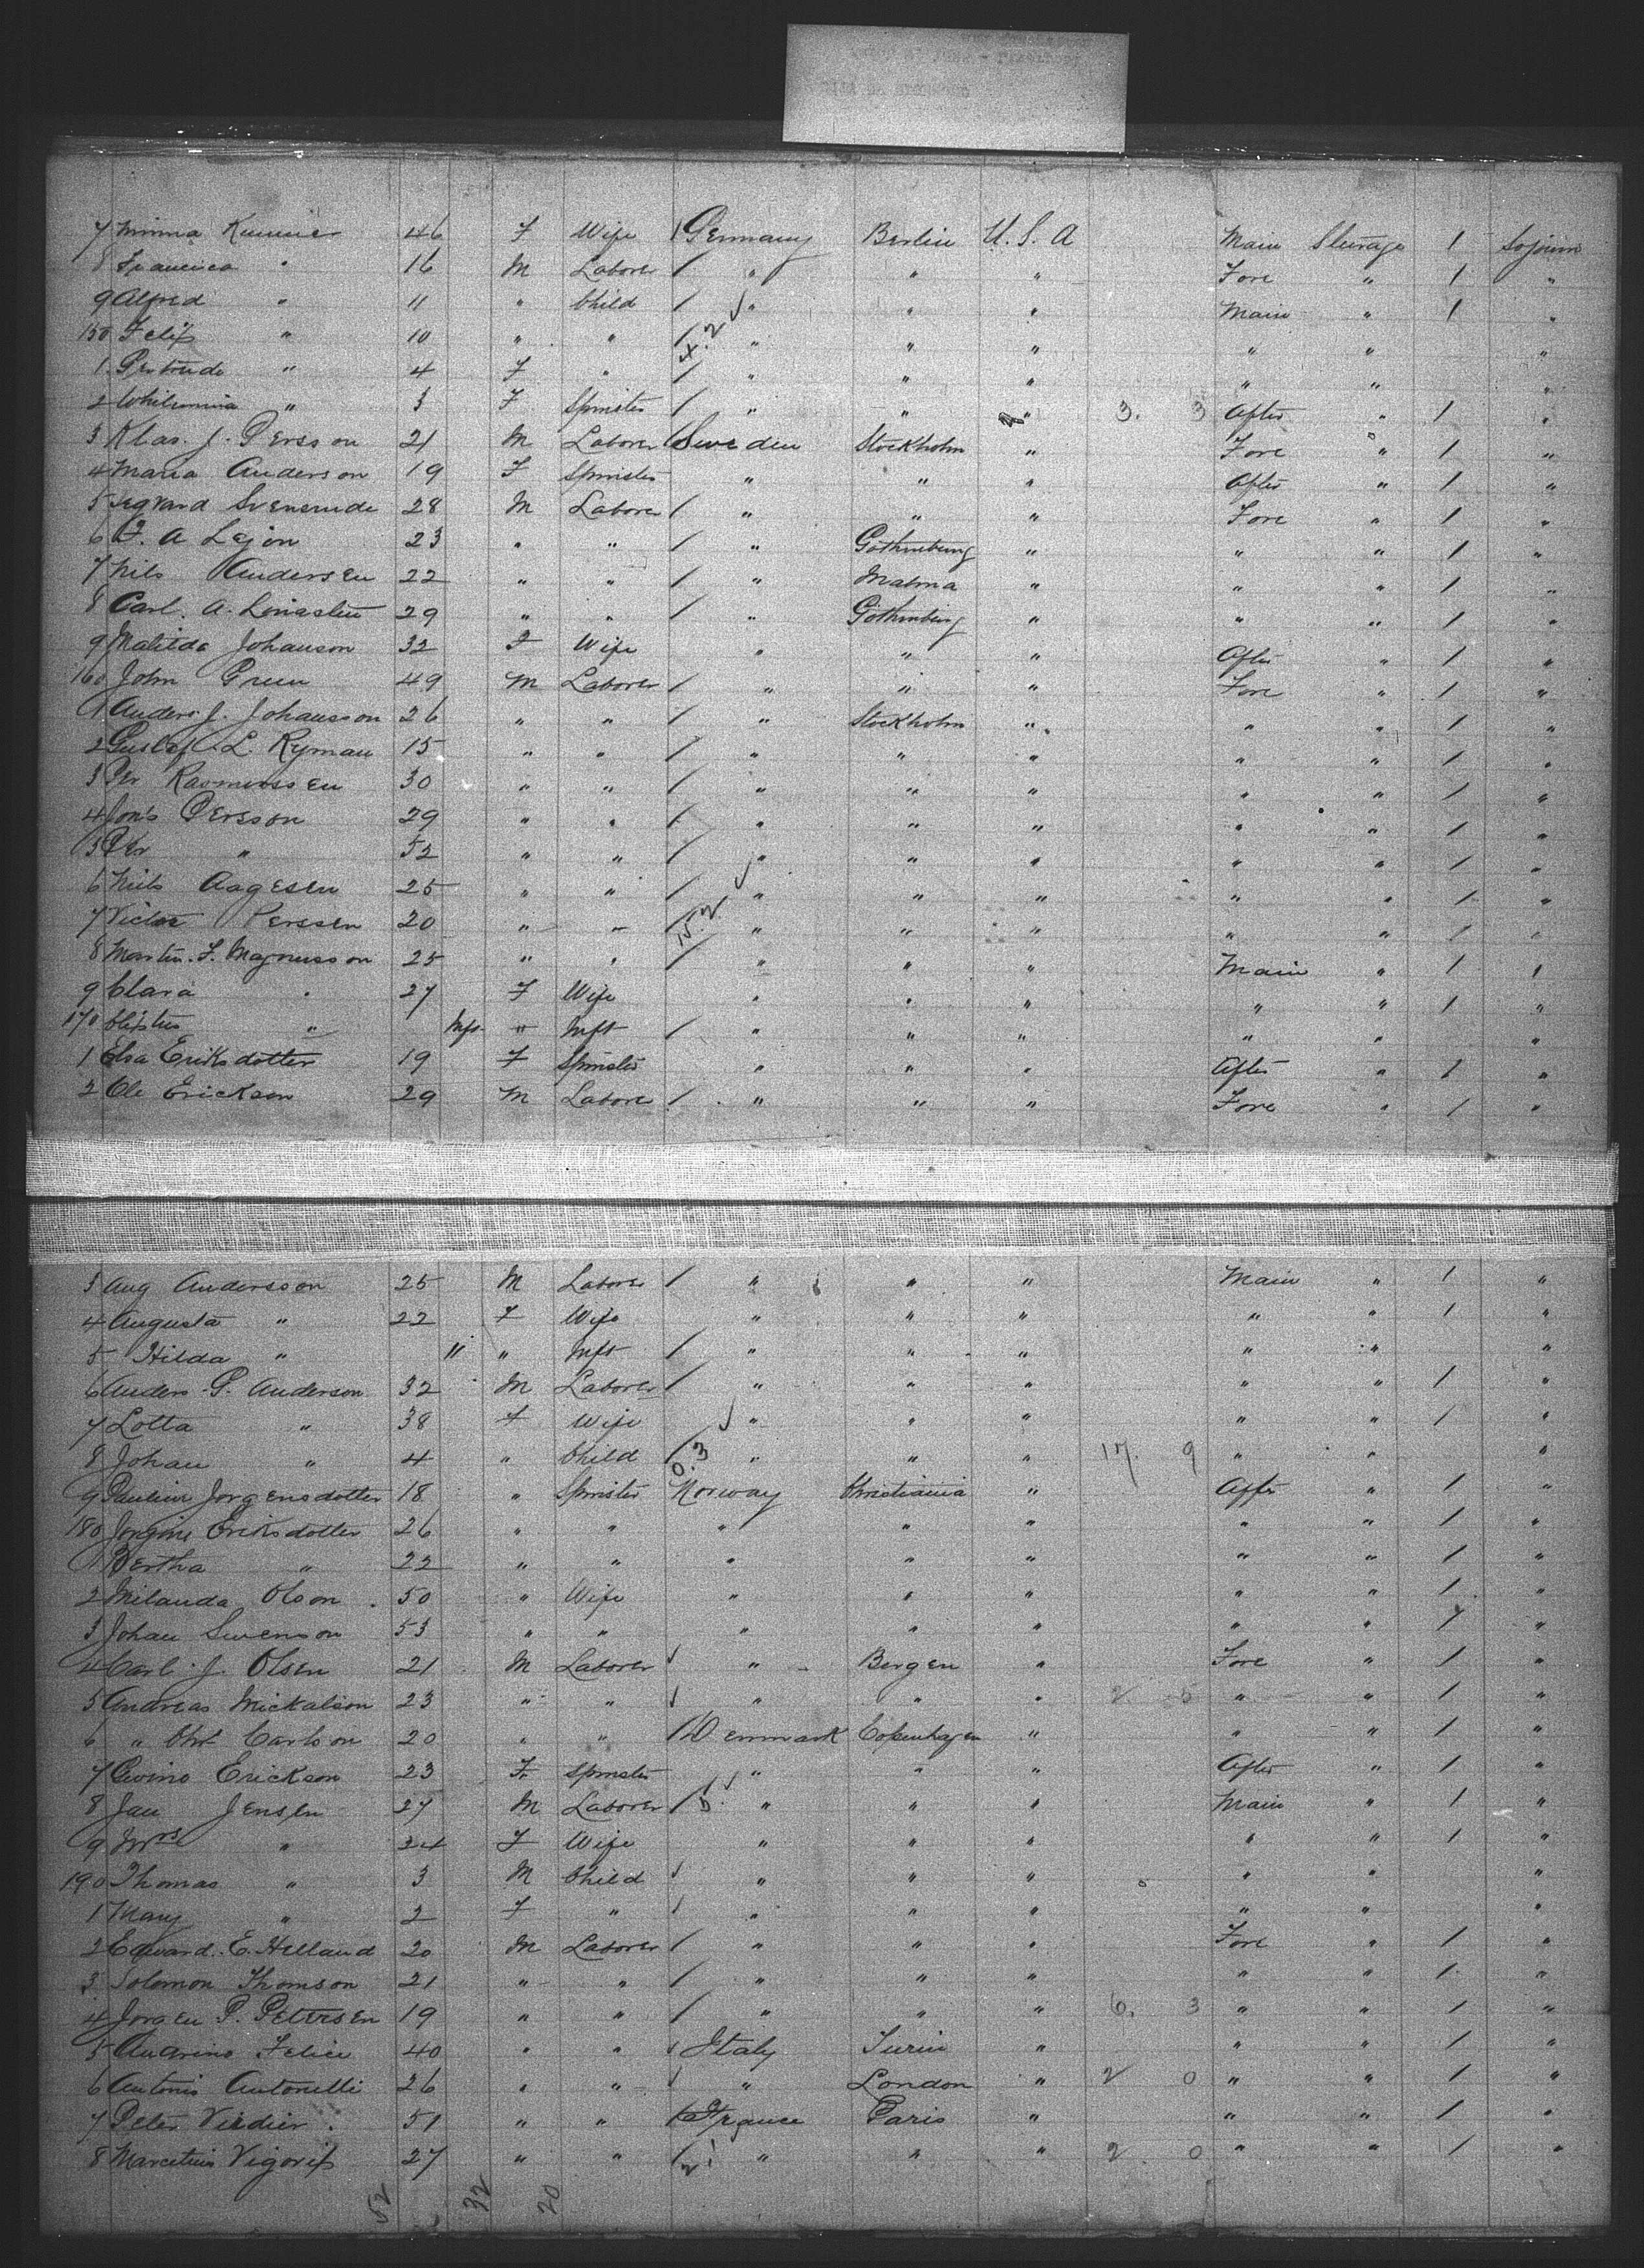 7 Minna Kummer 46 F Wife 1 Germany Berlin U.S.A Main Steerage 1 Sojourn
8 Francisca " 16 M Laborer 1 " " " Fore " 1 "
9 Alfred " 11 " Child 1 " " " Main " 1 "
150 Felix " 10 " " 1 " " " " " "
1 Gertrude " 4 F " 1 " " " " " "
2 Whilimina " 3 F Spinster 1 " " " 3. 3 After " 1 "
3 Klas. J. Persson 21 M Laborer 1 Sweden Stockholm " Fore " 1 "
4 Maria Anderson 19 F Spinster " " " After " 1 "
5 Segvard Svensrude 28 M Laborer 1 " " " Fore " 1 "
6 F. A Lejon 23 " " 1 " Gothenburg " " " 1 "
7 Nils Andersen 22 " " 1 " Malma " " " 1 "
8 Carl. A. 29 " " 1 " Gothenburg " " " 1 "
9 Matilda Johanson 32 F Wife " " " After " 1 "
160 John Green 49 M Laborer 1 " " " Fore " 1 "
1 Anders J. Johansson 26 " " 1 " Stockholm " " " 1 "
2 Gustaf L. Ryman 15 " " 1 " " " " " 1 "
3 Per Rasmussen 30 " " 1 " " " " " 1 "
4 Jons Persson 29 " " 1 " " " " " 1 "
5 Per " 52 " " 1 " " " " " 1 "
6 Niels Aagesen 25 " " 1 " " " " " 1 "
7 Victor Perssen 20 " " 15.2 " " " " " 1 "
8 Martin. F. Magnusson 25 " " 1 " " " Main " 1 "
9 Clara " 27 F Wife " " " " " 1 "
170 " Inft " Inft 1 " " " " " "
1 Elsa Eriksdotter 19 F Spinster " " " After " 1 "
2 Ole Erickson 29 M Laborer 1 " " " Fore " 1 "
3 Aug Andersson 25 M Laborer 1 " " " Main " 1 "
4 Augusta " 22 F Wife " " " " " 1 "
5 Hilda " 11 " Inft 1 " " " " " "
6 Anders. P. Anderson 32 M Laborer 1 " " " " " 1 "
7 Lotta " 38 F Wife " " " " " 1 "
8 Johan " 4 " Child 1 0.3 " " " 17. 9 " " "
9 Pauline Jorgensdotter 18 " Spinster Norway Christiania " After " 1 "
180 Jorgine Eriksdotter 26 " " " " " " " 1 "
1 Bertha " 22 " " " " " " " 1 "
2 Milanda Olson 50 " Wife " " " " " 1 "
3 Johan Swenson 53 " " " " " " " 1 "
4 Carl. J. Olsen 21 M Laborer 1 " Bergen " Fore " 1 "
5 Andreas Mickalson 23 " " 1 " " " 2. 5 " " 1 "
6 " Carlson 20 " " 1 Denmark Copenhagen " " " 1 "
7 Erickson 23 F. Spinster " " " After " 1 "
8 Jan Jensen 27 M Laborer 1 " " " Main " 1 "
9 Mrs " 24 F Wife " " " " " 1 "
190 Thomas " 3 M Child 1 " " " " " "
1 Mary " 2 F " 1 " " " " " "
2 Edward. E. Helland 20 M Laborer 1 " " " Fore " 1 "
3 Solomon Thomson 21 " " 1 " " " " " 1 "
4 Jorgen P. Petersen 19 " " 1 " " " 6. 3 " " 1 "
5 Felice 40 " " 1 Italy Turin " " " 1 "
6 Antonio Antonelli 26 " " 1 " London " 2 0 " " 1 "
7 Peter Virdier. 51 " " 1 France Paris " " " 1 "
8 27 " " 1 " " " 2 0 " " 1 "
52 32 20